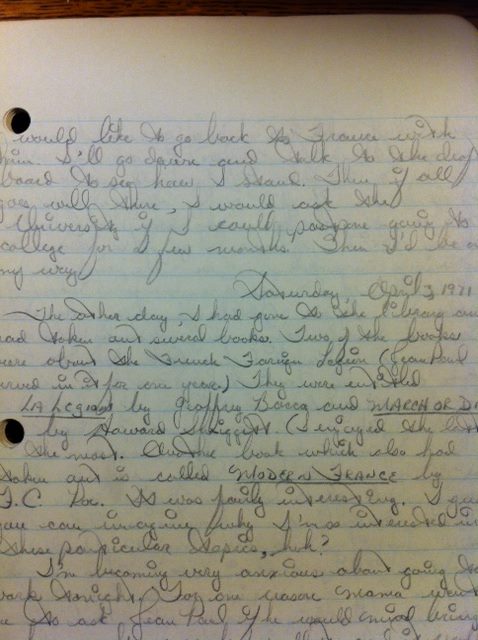 would like to go back to France with
him. I'll go down and talk to the draft
board to see how I stand. Then if all
goes well there, I would ask the
University if I could postpone going to
college for a few months. Then I'd be on
my way.
Saturday, April 3, 1971
The other day, I had gone to the library and
had taken out several books. Two of the books
were about the French Foreign Legion (Jean Paul
served in it for one year.) They were entitled
LA LEGION by Geoffrey and MARCH OR DI
by Howard (I enjoyed the latt
the most. Another book which I also had
taken out is called MODERN FRANCE by
F.C. Roe. It was fairly interesting. I gue
you can imagine why I'm so interested in
these particular topics, huh?
I'm becoming very anxious about going to
work tonight. For one reason Mama went
me to ask Jean Paul if he would mind being